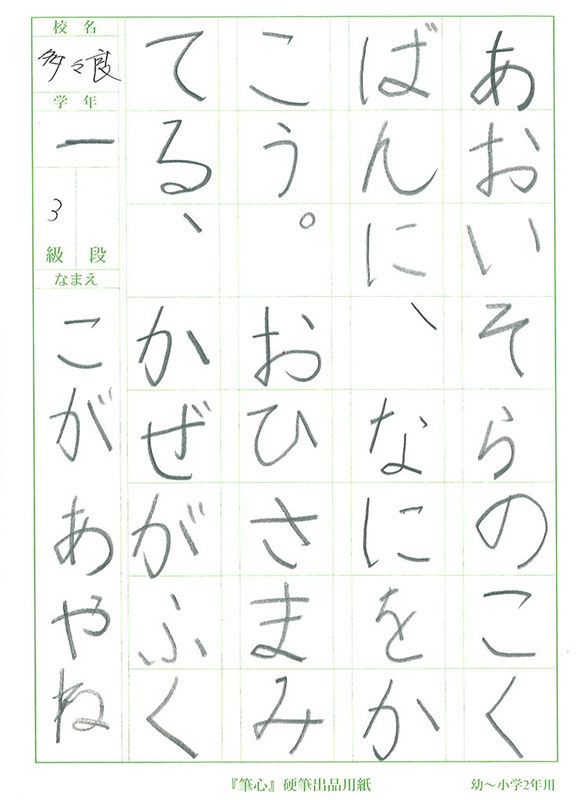 あおいそらのこく
ばんに、なにをか
こう。おひさまみ
てる、かぜがふく
校名
多々良
学年
一
3
級 段
なまえ
こがあやね
『筆心』硬筆出品用紙
幼～小学2年用